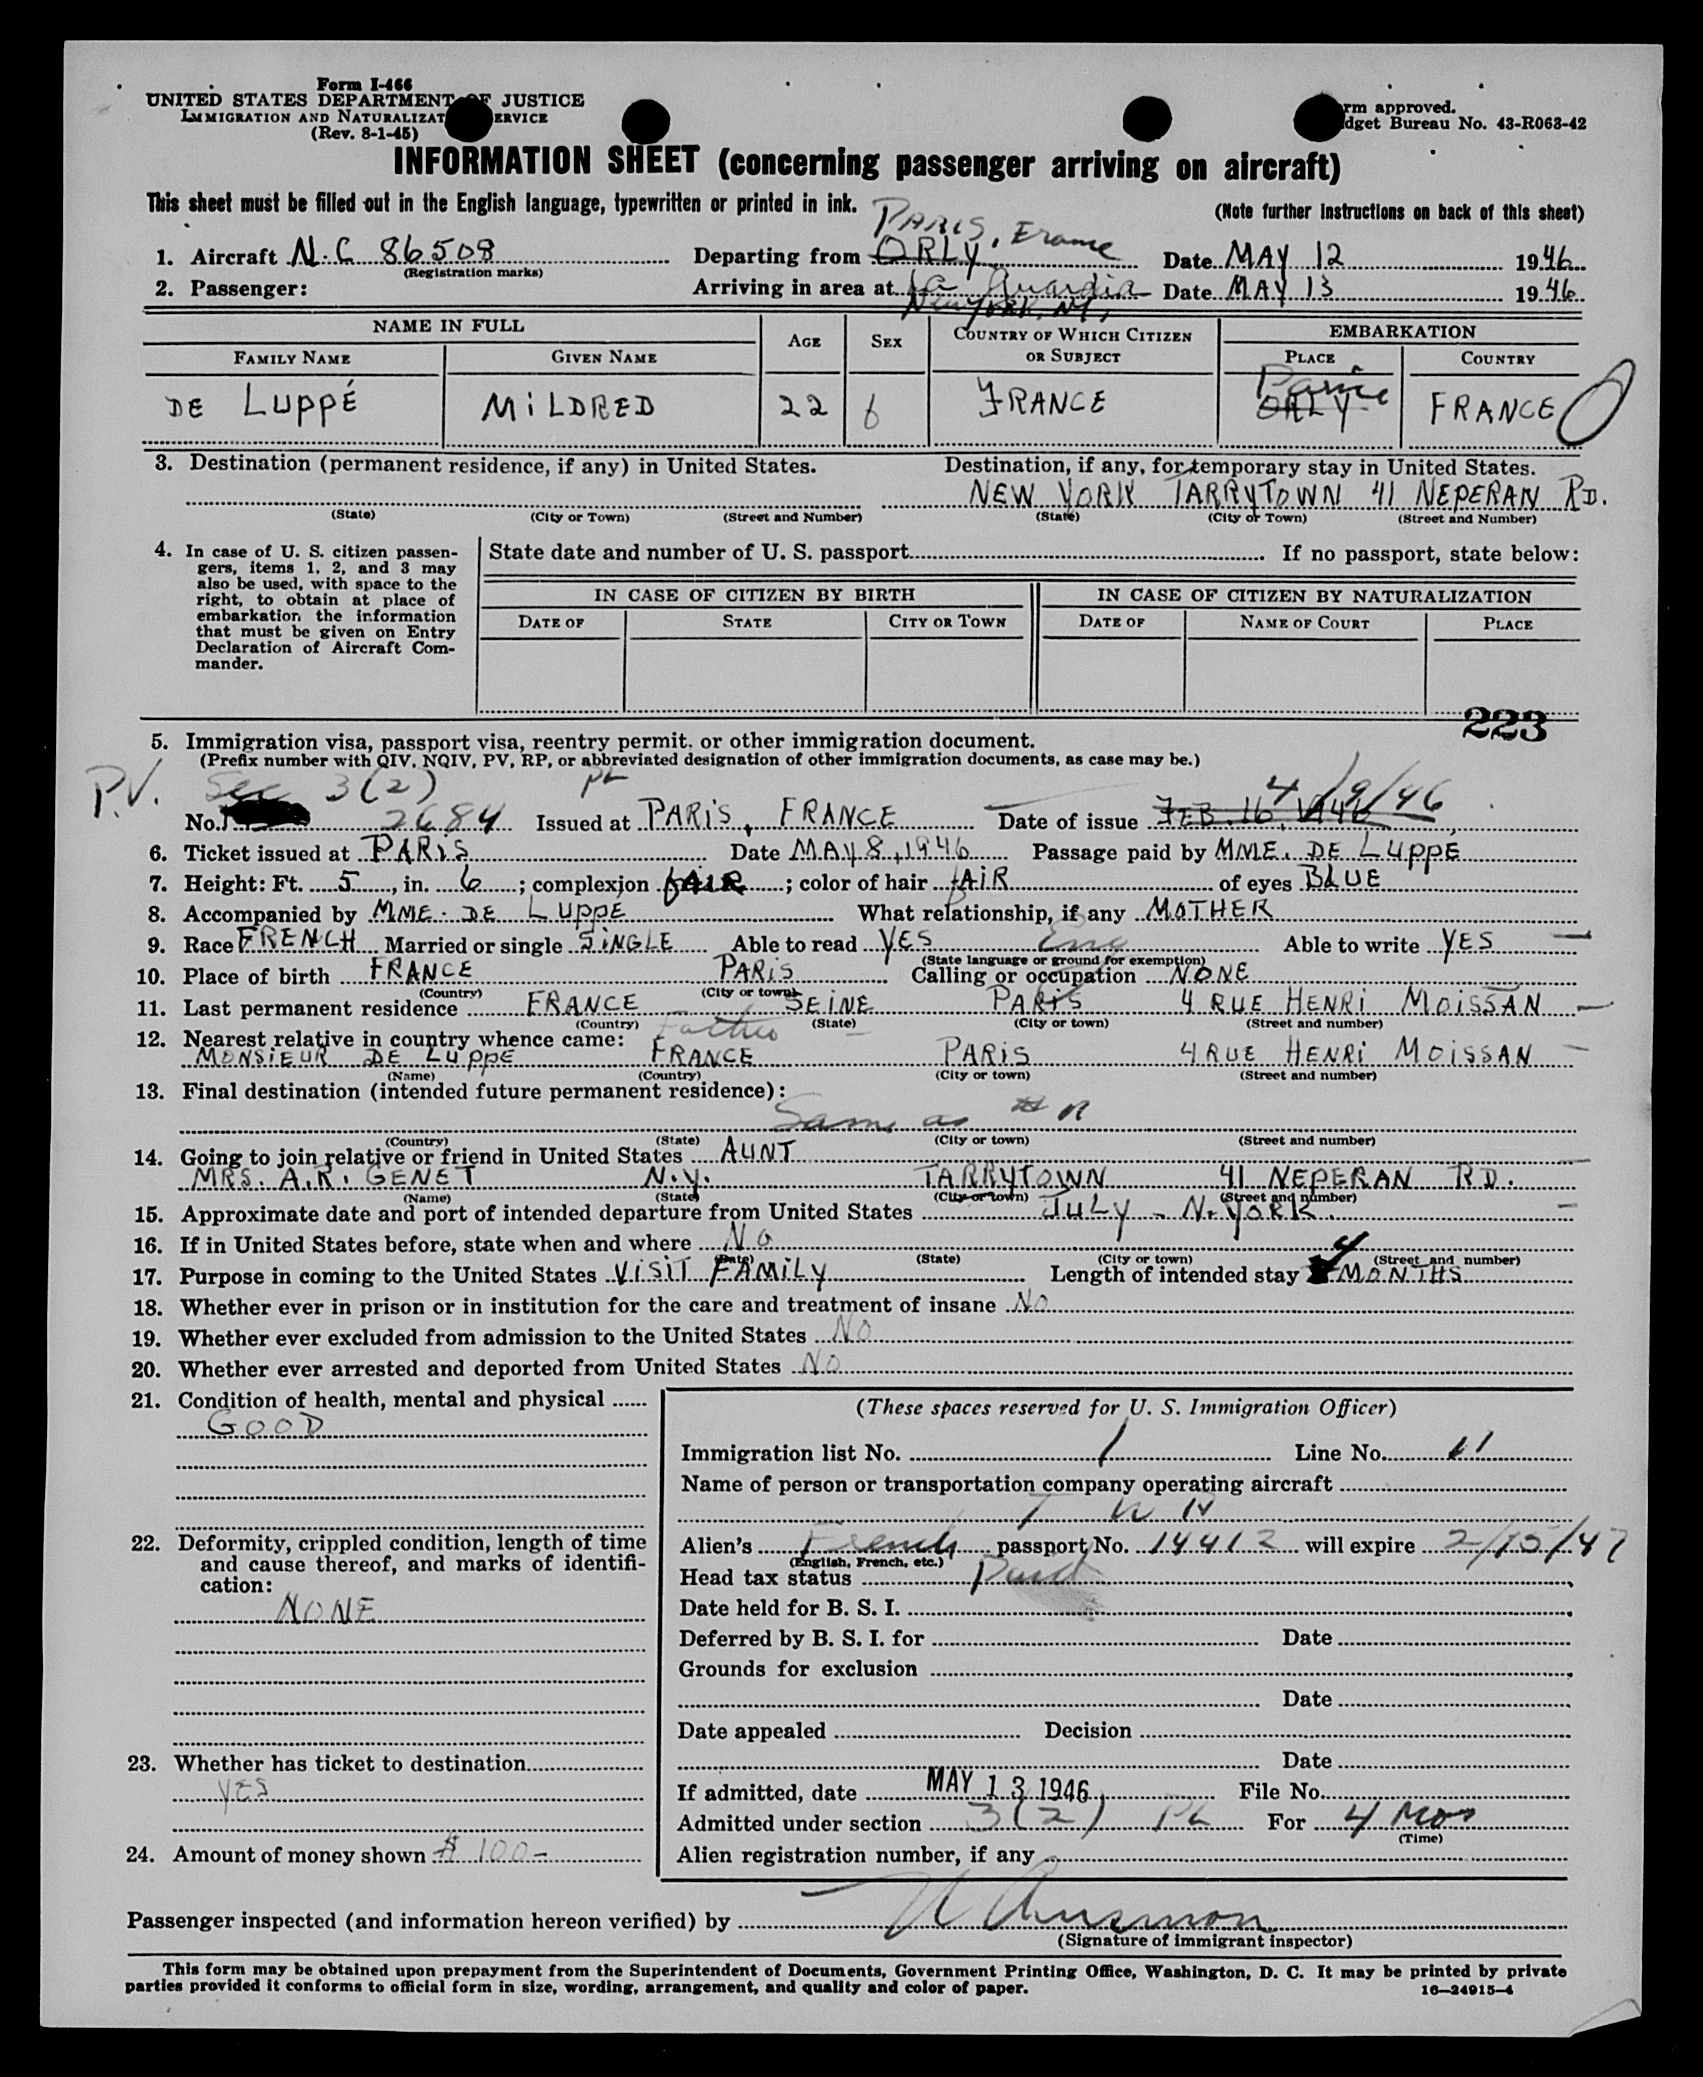 Form I-466
UNITED STATES DEPARTMENT OF JUSTICE
IMMIGRATION AND NATURALIZAT ERVICE
(Rev. 8-1-45)
rm approved.
dget Bureau No. 43-R063-42
INFORMATION SHEET (concerning passenger arriving on aircraft)
This sheet must be filled out in the English language, typewritten or printed in ink.
(Note further instructions on back of this sheet)
PARIS, France
1. Aircraft N.C 86508 Departing from ORLY Date MAY 12 1946
(Registration marks)
2. Passenger: Arriving in area at La Guardia Date MAY 13 1946
New York, NY,
NAME IN FULL AGE SEX COUNTRY OF WHICH CITIZEN OR SUBJECT EMBARKATION
FAMILY NAME GIVEN NAME PLACE COUNTRY
Paris
DE LUPPÉ MILDRED 22 f FRANCE ORLY FRANCE
3. Destination (permanent residence, if any) in United States. Destination, if any, for temporary stay in United States.
NEW YORK TARRYTOWN 41 NEPERAN RD.
(State) (City or Town) (Street and Number) (State) (City or Town) (Street and Number)
4. In case of U. S. citizen passen-
gers, items 1, 2, and 3 may
also be used, with space to the
right, to obtain at place of
embarkation the information
that must be given on Entry
Declaration of Aircraft Com-
mander.
State date and number of U. S. passport If no passport, state below:
IN CASE OF CITIZEN BY BIRTH IN CASE OF CITIZEN BY NATURALIZATION
DATE OF STATE CITY OR TOWN DATE OF NAME OF COURT PLACE
223
5. Immigration visa, passport visa, reentry permit, or other immigration document.
(Prefix number with QIV, NQIV, PV, RP, or abbreviated designation of other immigration documents, as case may be.)
P.V. Sec 3(2) PL 4/9/46
No. 2684 Issued at PARIS, FRANCE Date of issue FEB. 16, 1946
6. Ticket issued at PARIS Date MAY 8, 1946 Passage paid by MME. DE LUPPE
7. Height: Ft. 5, in. 6; complexion FAIR; color of hair FAIR of eyes BLUE
8. Accompanied by MME. DE LUPPÉ What relationship, if any MOTHER
9. Race FRENCH Married or single SINGLE Able to read YES Eng Able to write YES
(State language or ground for exemption)
10. Place of birth FRANCE PARIS Calling or occupation NONE
(Country) (City or town)
11. Last permanent residence FRANCE SEINE PARIS 4 RUE HENRI MOISSAN
(Country) (State) (City or town) (Street and number)
12. Nearest relative in country whence came: Father
MONSIEUR DE LUPPE FRANCE PARIS 4 RUE HENRI MOISSAN
(Name) (Country) (City or town) (Street and number)
13. Final destination (intended future permanent residence):
Same as # 11
(Country) (State) (City or town) (Street and number)
14. Going to join relative or friend in United States AUNT
MRS. A.R. GENET N.Y. TARRYTOWN 41 NEPERAN RD.
(Name) (State) (City or town) (Street and number)
15. Approximate date and port of intended departure from United States JULY - N-YORK.
16. If in United States before, state when and where NO
(Date) (State) (City or town) (Street and number)
17. Purpose in coming to the United States VISIT FAMILY Length of intended stay 4 MONTHS
18. Whether ever in prison or in institution for the care and treatment of insane NO
19. Whether ever excluded from admission to the United States NO
20. Whether ever arrested and deported from United States NO
21. Condition of health, mental and physical
GOOD
22. Deformity, crippled condition, length of time
and cause thereof, and marks of identifi-
cation:
NONE
23. Whether has ticket to destination
YES
24. Amount of money shown $ 100-
(These spaces reserved for U. S. Immigration Officer)
Immigration list No. 1 Line No. 11
Name of person or transportation company operating aircraft
T W A
Alien's French passport No. 14412 will expire 2/15/47
(English, French, etc.)
Head tax status Paid
Date held for B. S. I.
Deferred by B. S. I. for Date
Grounds for exclusion
Date
Date appealed Decision
Date
If admitted, date MAY 13 1946 File No.
Admitted under section 3(2) PL For 4 Mos
(Time)
Alien registration number, if any
Passenger inspected (and information hereon verified) by
(Signature of immigrant inspector)
This form may be obtained upon prepayment from the Superintendent of Documents, Government Printing Office, Washington, D. C. It may be printed by private
parties provided it conforms to official form in size, wording, arrangement, and quality and color of paper.
16—24915-4